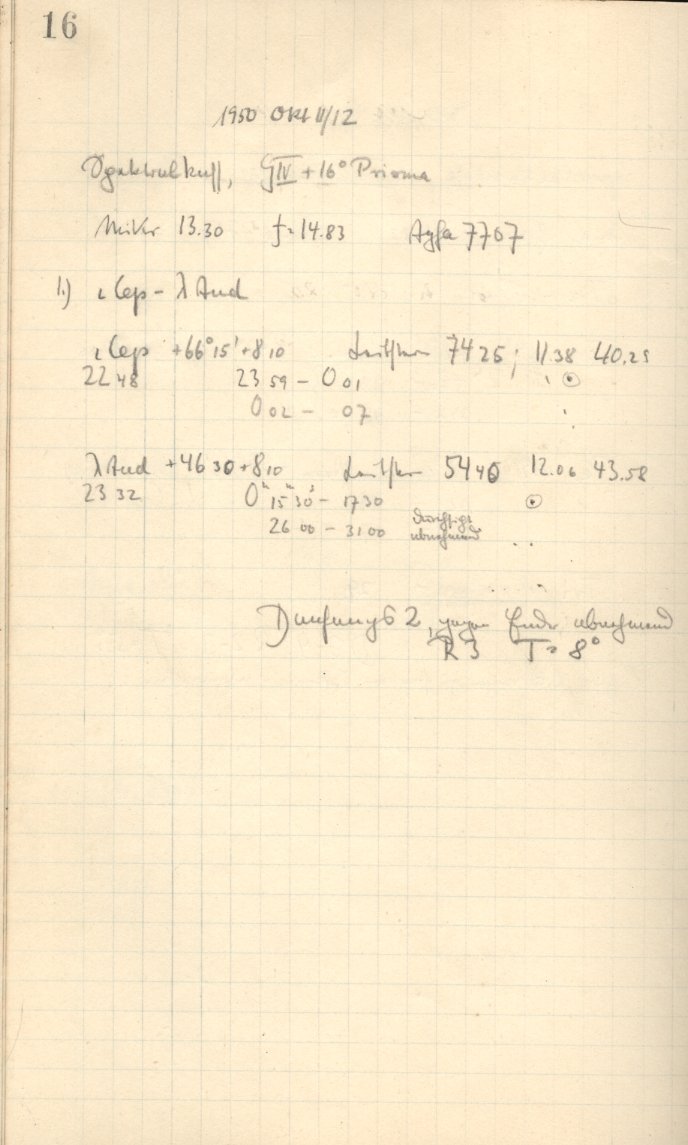 16
1950 Okt 11/12
Spektralkuff, G IV + 16° Prisma
Mikr 13.30 f = 14.83 Agfa 7707
1.) ι Cep – λ And
ι Cep +66° 15' +8 10 Leitstern 7425; 11.38 40.25
22 48 23 59 – 0 01
0 02 – 07
λ And +46 30 +8 10 Leitstern 5440 12.06 43.58
23 32 0 15 30 – 17 30
26 00 – 31 00 Durchsicht
abnehmend
D anfangs 2, gegen Ende abnehmend
R 3 T = 8°